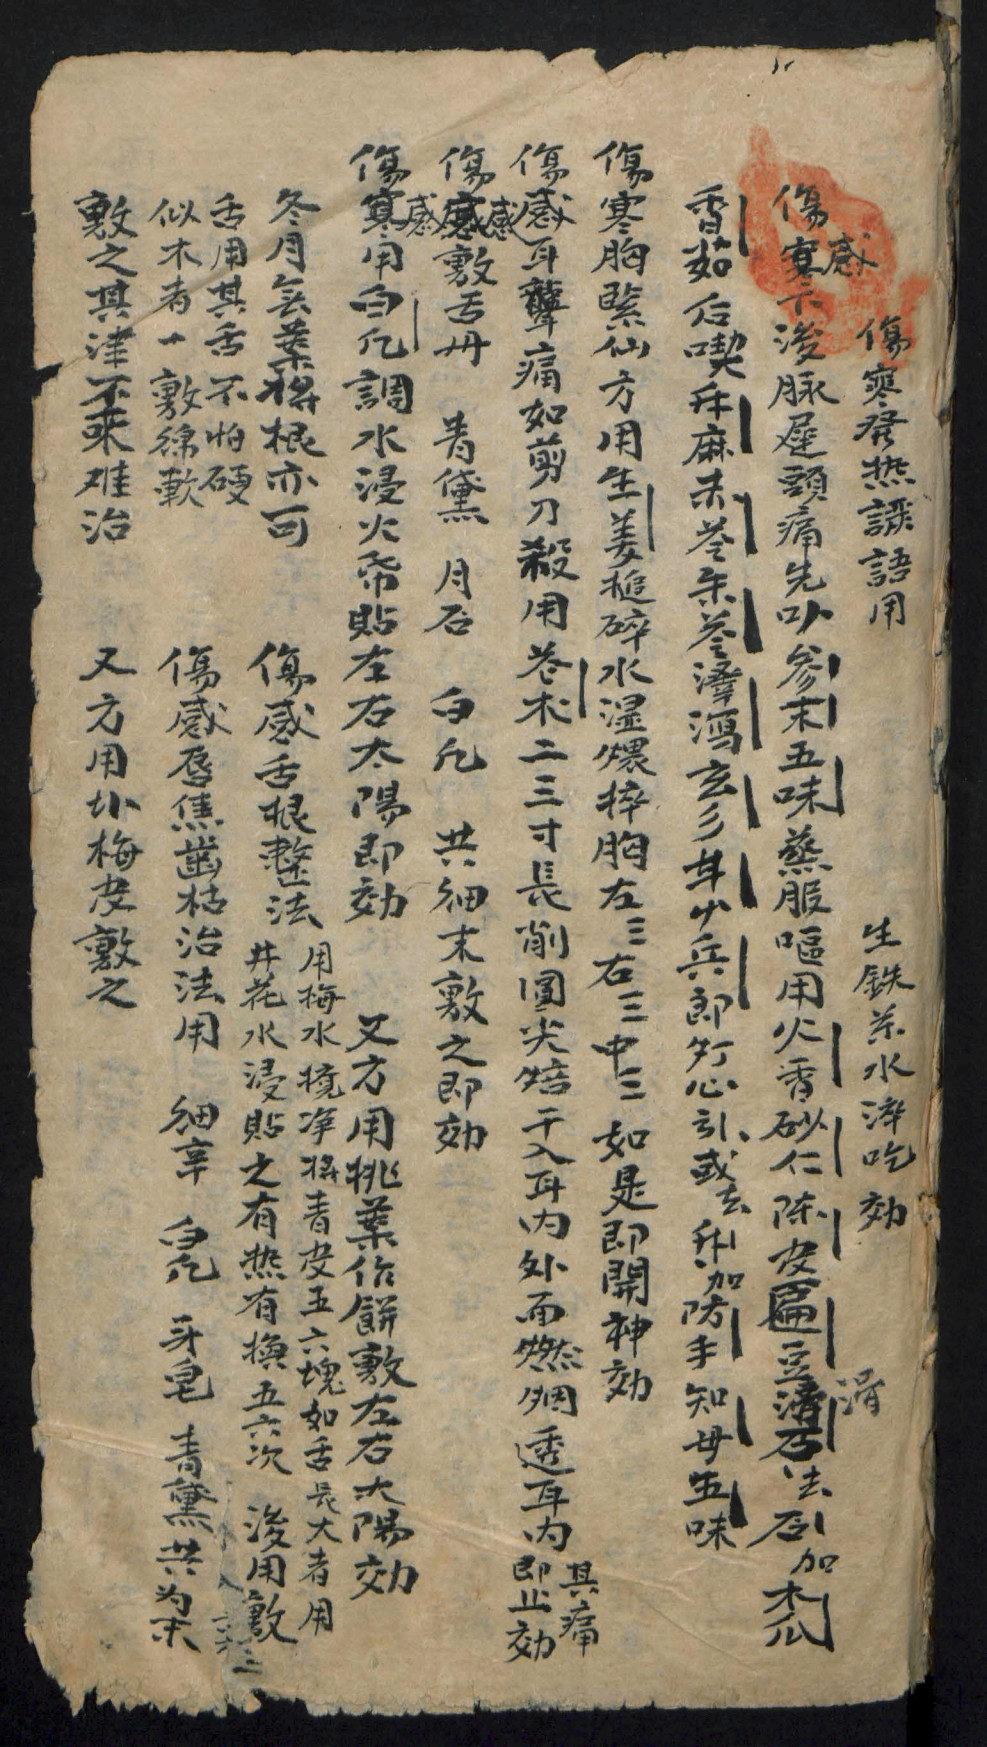 傷寒發热譫語用　生鉄茶水淬吃効
傷寒下後脉遲頭痛先以參末五味蒸服嘔用火香砂仁陈皮扁豆滑石去石加木瓜
感
滑
香茹后喫升麻赤苓朱苓澤瀉玄彡甘少兵郎灯心引或去升加防手知母五味
傷寒胸緊仙方用生姜搥碎水濕煨擦胸左三右三中三如是即開神効
傷感耳聾痛如剪刀殺用苍木二三寸長削圓尖焙干入耳内外面燃烟透耳内其痛即止効
傷感敷舌丹　青黛　月石　白凡　共細末敷之即効
感
傷寒用白凡調水浸火帋貼左右太陽即効　又方用桃葉作餅敷左右太陽効
感
冬月無葉將根亦可
傷感舌根整法用梅水境净將青皮五六塊如舌長大者用
井花水浸貼之有热有換五六次　後用敷
舌用其舌不怕硬
似木者一敷綿軟
傷感唇焦齒枯治法用　細辛　白凡　牙皂　青黛共为末
敷之其津不来难治
又方用北梅皮敷之